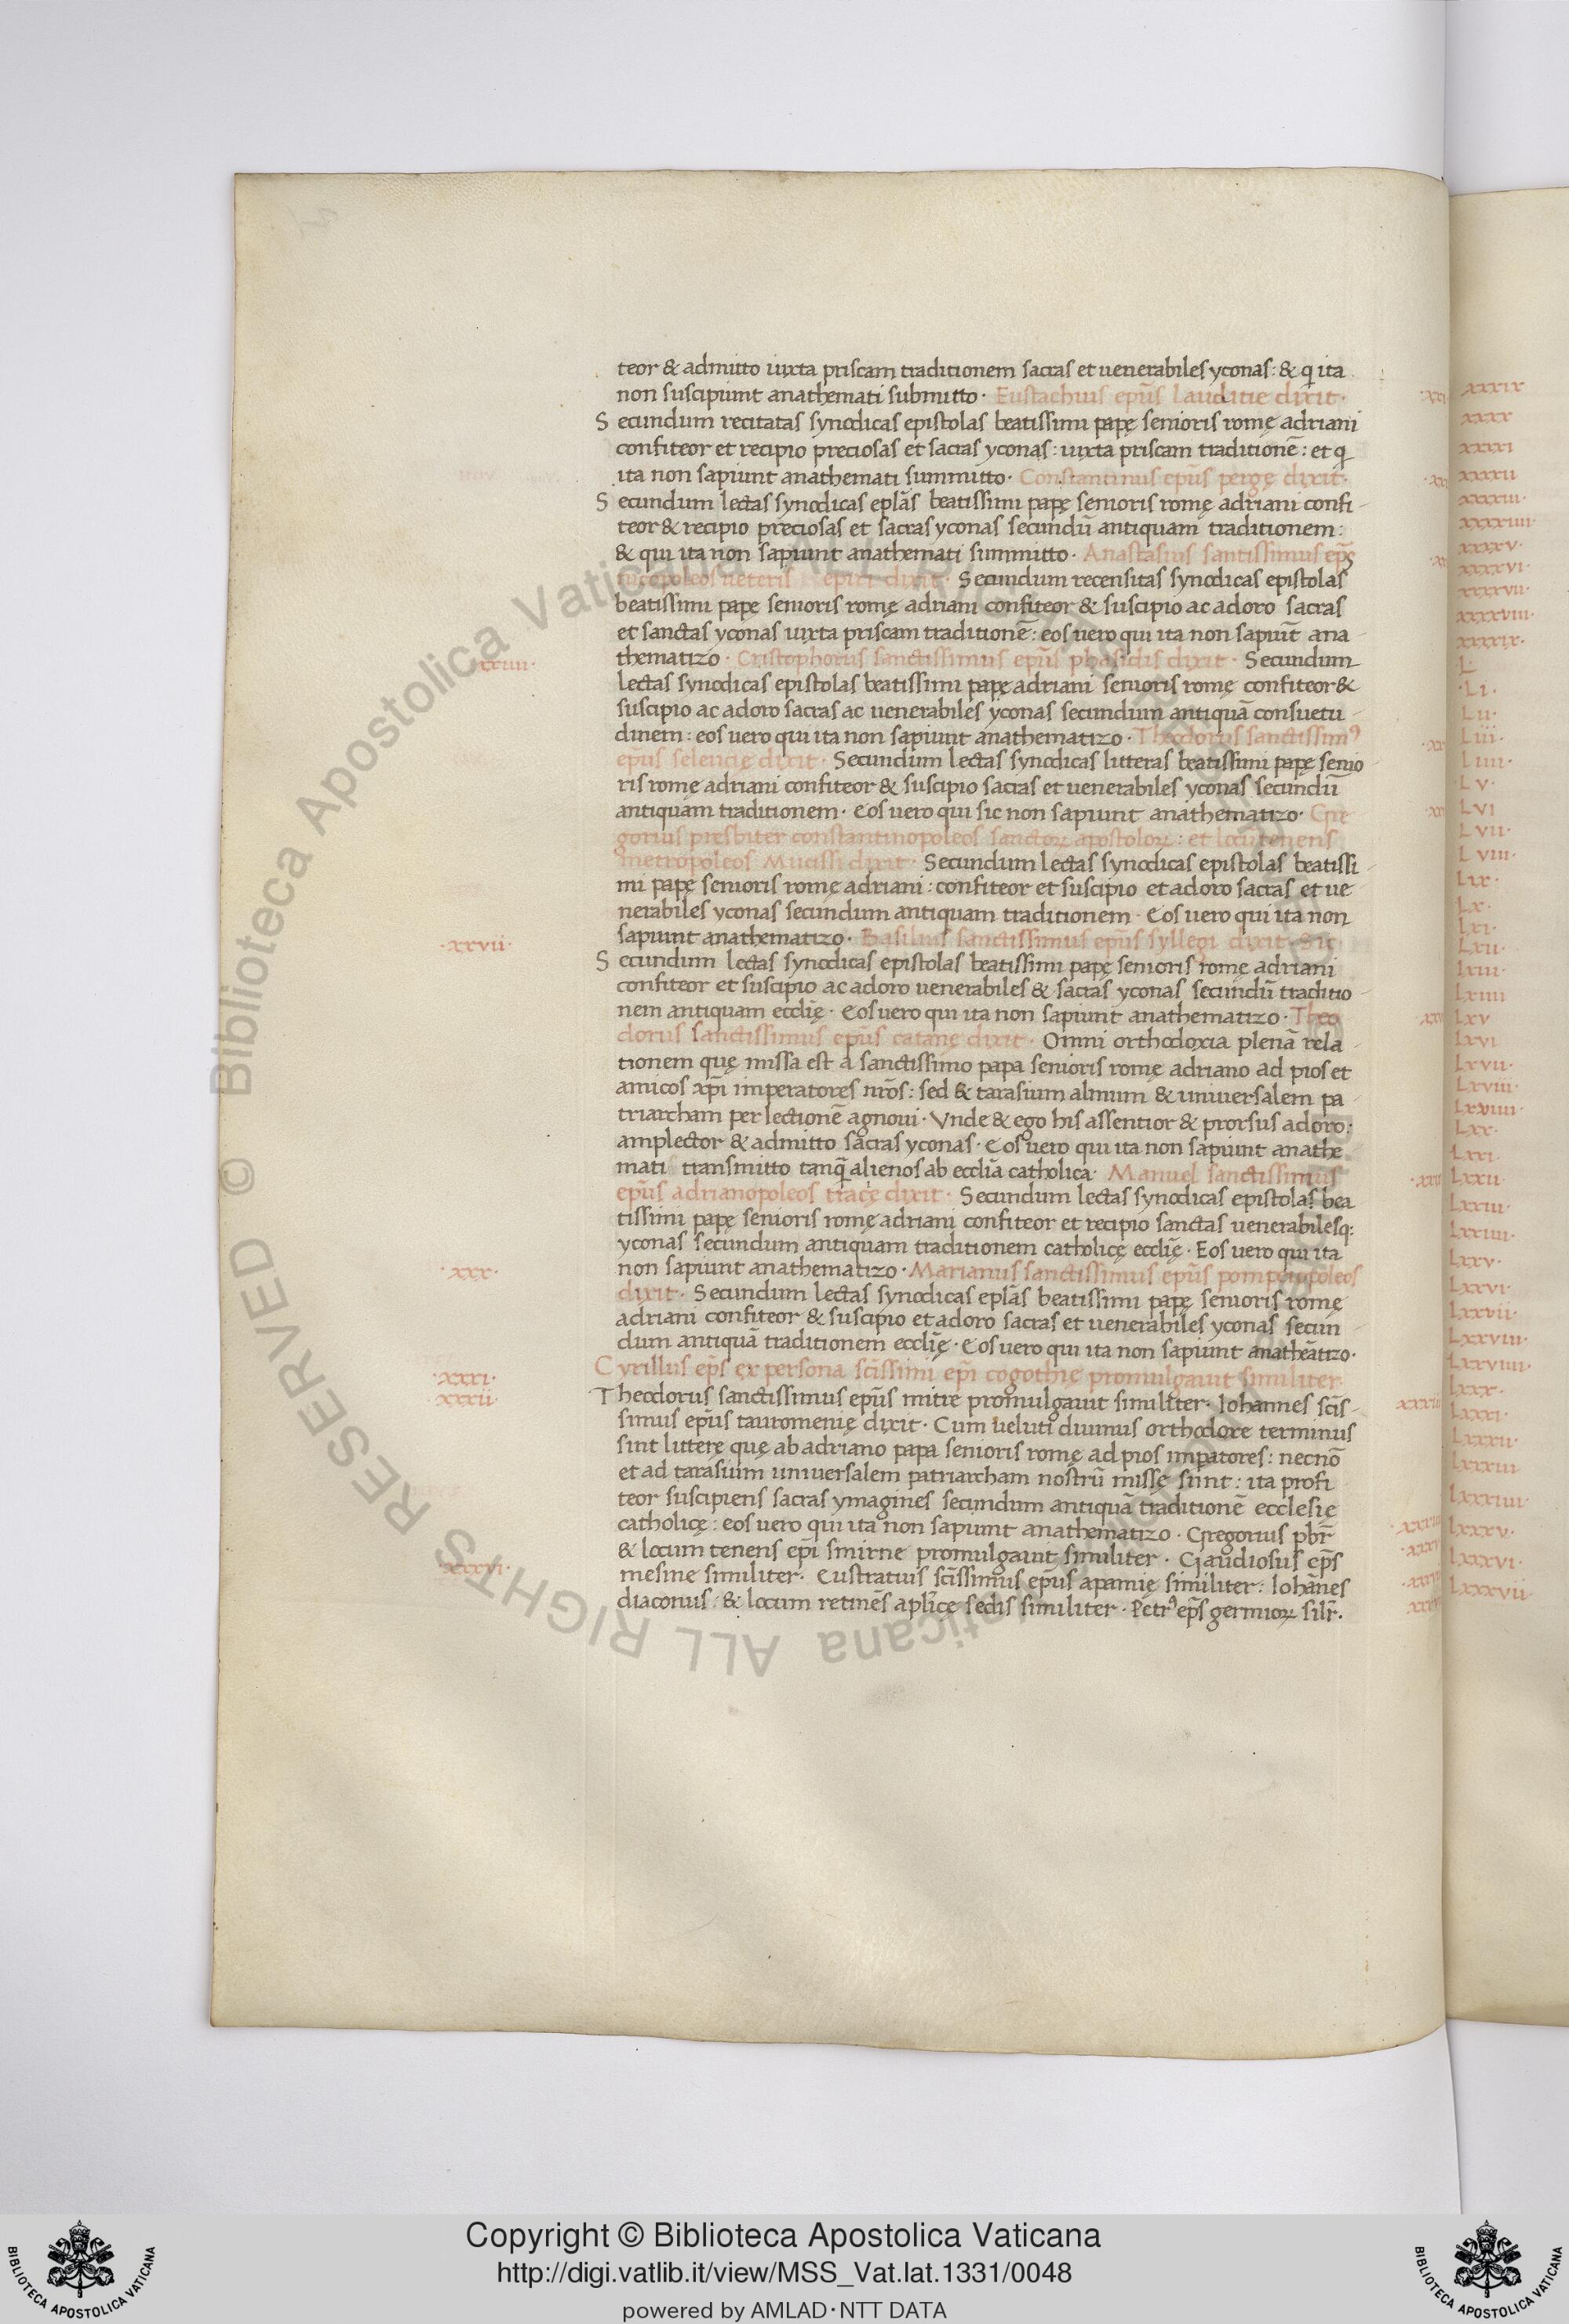 teor & admitto iuxta priscam traditionem sacras et uenerabiles yconas: & q ita
non suscipiunt anathemati submitto· Eustachius ep̄s Lauditie dixit·
Secundum recitatas synodicas epistolas beatissimi papę senioris romę adriani
confiteor et recipio preciosas et sacras yconas: iuxta priscam traditionē: et q
ita non sapiunt anathemati summitto· Constantinus ep̄us pergę dixit·
Secundum lectas synodicas eplās beatissimi papę senioris romę adriani confi-
teor & recipio preciosas et sacras yconas secundū antiquam traditionem:
& qui ita non sapiunt anathemati summitto· Anastasius santissimus ep̄s
ueteris epiri dixit· Secundum recensitas synodicas epistolas
beatissimi papę senioris romę adriani confiteor & suscipio ac adoro sacras
et sanctas yconas iuxta priscam traditionē: eos uero qui ita non sapiūt ana-
xxiiii· thematizo· Cristophorus sanctissimus ep̄us phasidis dixit· Secundum
lectas synodicas epistolas beatissimi papę adriani senioris romę confiteor &
suscipio ac adoro sacras ac uenerabiles yconas secundum antiquā consuetu-
dinem: eos uero qui ita non sapiunt anathematizo· Theodorus sanctissim⁹
ep̄us selencię dixit· Secundum lectas synodicas litteras beatissimi papę senio
ris romę adriani confiteor & suscipio sacras et uenerabiles yconas secundū
antiquam traditionem· Eos uero qui sic non sapiunt anathematizo· Gre
gorius presbiter constantinopoleos sanctoꝝ apostoloꝝ: et locutenens
metropoleos Nucissi dixit· Secundum lectas synodicas epistolas beatissi-
mi papę senioris romę adriani: confiteor et suscipio et adoro sacras et ue-
nerabiles yconas secundum antiquam traditionem· Eos uero qui ita non
·xxvii· sapiunt anathematizo· Basilius sanctissimus ep̄us syllegi dixit· Sic
Secundum lectas synodicas epistolas beatissimi papę senioris romę adriani
confiteor et suscipio ac adoro uenerabiles & sacras yconas secundū traditio
nem antiquam ecclīę· Eos uero qui ita non sapiunt anathematizo· Theo
dorus sanctissimus ep̄us catanę dixit· Omni orthodoxia plenā rela-
tionem quę missa est a sanctissimo papa senioris romę adriano ad pios et
amicos xp̄i imperatores nr̄os: sed & tarasium almum & uniuersalem pa-
triarcham per lectionē agnoui· Vnde & ego his assentior & prorsus adoro:
amplector & admitto sacras yconas· Eos uero qui ita non sapiunt anathe
mati transmitto tanq̄ alienos ab ecclīa catholica· Manuel sanctissimus
ep̄us adrianopoleos tracę dixit· Secundum lectas synodicas epistolas bea
tissimi papę senioris romę adriani confiteor et recipio sanctas uenerabilesq:
yconas secundum antiquam traditionem catholicę ecclīę· Eos uero qui ita
·xxx· non sapiunt anathematizo· Marianus sanctissimus ep̄us pompeiopoleos
dixit· Secundum lectas synodicas eplās beatissimi papę senioris romę
adriani confiteor & suscipio et adoro sacras et uenerabiles yconas secun
dum antiquā traditionem ecclīę· Eos uero qui ita non sapiunt anatheātizo·
·xxxi· Cyrillus ep̄s ex persona scīssimi ep̄i cogothię promulgauit similiter·
·xxxii· Theodorus sanctissimus ep̄us mitre promulgauit similiter· Iohannes scīs-
simus ep̄us tauromenię dixit· Cum ueluti diuinus orthodoxe terminus
sint litterę quę ab adriano papa senioris romę ad pios impatores: necnō
et ad tarasium uniuersalem patriarcham nostrū missę sunt: ita profi-
teor suscipiens sacras ymagines secundum antiquā traditionē ecclesię
catholicę: eos uero qui ita non sapiunt anathematizo· Gregorius pbr̄
& locum tenens ep̄i smirne promulgauit similiter· Gaudiosus ep̄s
·xxxvi· mesine similiter· Eustratius scīssimus ep̄us apamię similiter: Iohānes
diaconus: & locum retinēs aplīce sedis similiter· Petr⁹ ep̄s germioꝝ silr̄.
xxxix
xxxx
xxxxi
xxxxii
xxxxiii·
xxxxiiii·
xxxxv·
xxxxvi·
xxxxvii·
xxxxviii·
xxxxix·
L·
·Li·
Lii·
Liii·
Liiii·
Lv·
Lvi
Lvii·
Lviii·
Lix·
Lx·
Lxi·
Lxii·
Lxiii·
Lxiiii
Lxv
Lxvi
Lxvii·
Lxviii·
Lxviiii·
Lxx·
Lxxi·
Lxxii·
Lxxiii·
Lxxiiii·
Lxxv·
Lxxvi·
Lxxvii·
Lxxviii·
Lxxviiii·
Lxxx·
Lxxxi·
Lxxxii·
Lxxxiii
Lxxxiiii·
Lxxxv·
Lxxxvi·
Lxxxvii·
© Biblioteca Apostolica Vaticana ALL RIGHTS RESERVED
BIBLIOTECA APOSTOLICA VATICANA
Copyright © Biblioteca Apostolica Vaticana
http://digi.vatlib.it/view/MSS_Vat.lat.1331/0048
powered by AMLAD·NTT DATA
BIBLIOTECA APOSTOLICA VATICANA